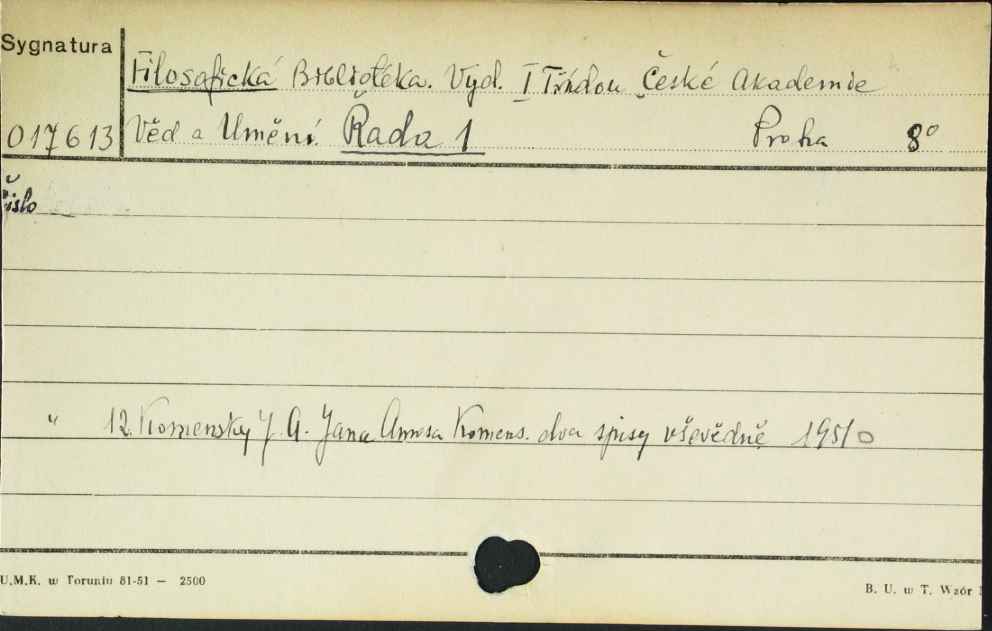 Sygnatura
Filosofická Bibliotéka. Vyd. I Třídou České Akademie
017613 Věd a Umění. Řada 1 Praha 8°
Číslo
" 12. Komenský J. A. Jana Amosa Komens. dva spisy vševědné 1951
U.M.K. w Toruniu 81-51 — 2500
B. U. w T. Wzór